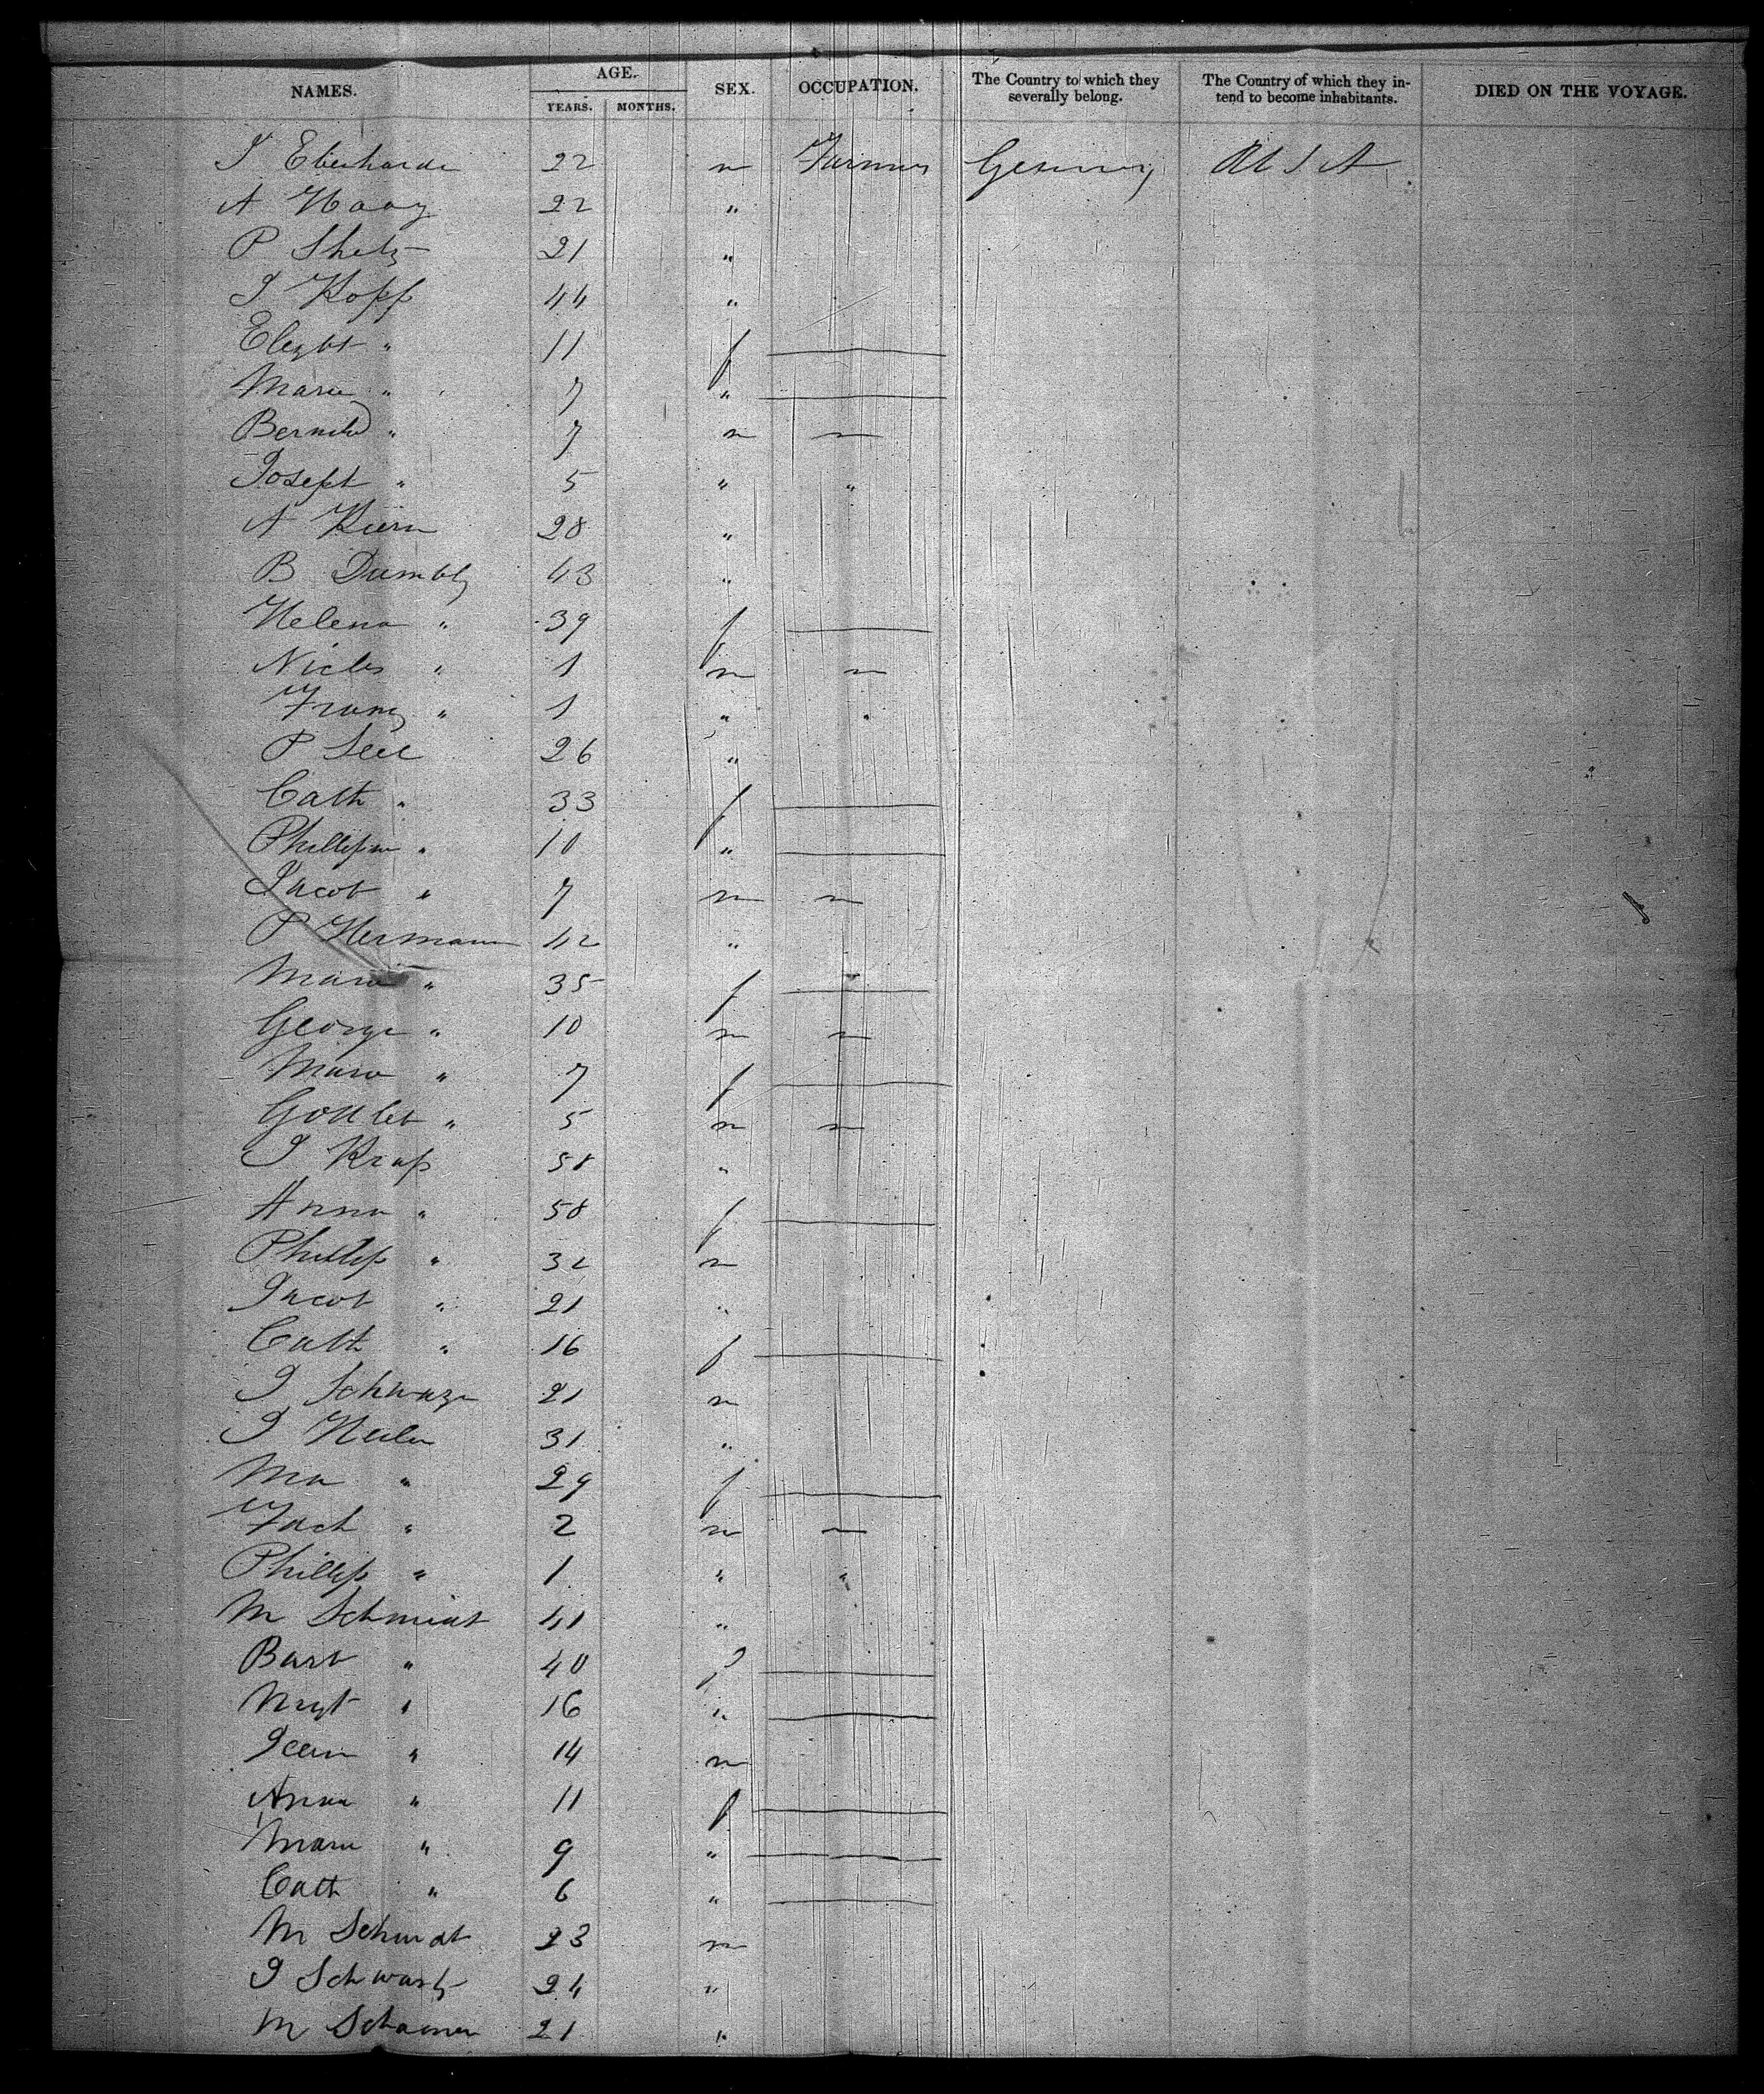 NAMES. AGE. SEX. OCCUPATION. The Country to which they severally belong. The Country of which they intend to become inhabitants. DIED ON THE VOYAGE.
YEARS. MONTHS.
J Eberharde 22 m Farmer Germany U S A
A Haag 22 "
P Shetz 21 "
J Kopp 44 "
Elizbt " 11 f
Marie " 7 "
Bernhd " 7 m —
Joseph " 5 " "
A Kiern 28 "
B Dumbly 43 "
Helena " 39 f
Nicles " 1 m —
Franz " 1 " "
P Seel 26 "
Cath " 33 f
Phillipin " 10 "
Jacob " 7 m —
P Hermann 42 "
Marie " 35 f
George " 10 m —
Marie " 7 f
Gottleb " 5 m —
J Krap 58 "
Anna " 58 f
Phillip " 32 m
Jacob " 21 "
Cath " 16 f
J 21 m
J 31 "
Ma " 29 f
" 2 m —
Phillip " 1 " "
M Schmidt 41 "
Barb " 40 f
Mrgt " 16 "
Jean " 14 m
Anna " 11 f
Marie " 9 "
Cath " 6 "
M Schmidt 23 m
J Schwartz 24 "
M 21 "